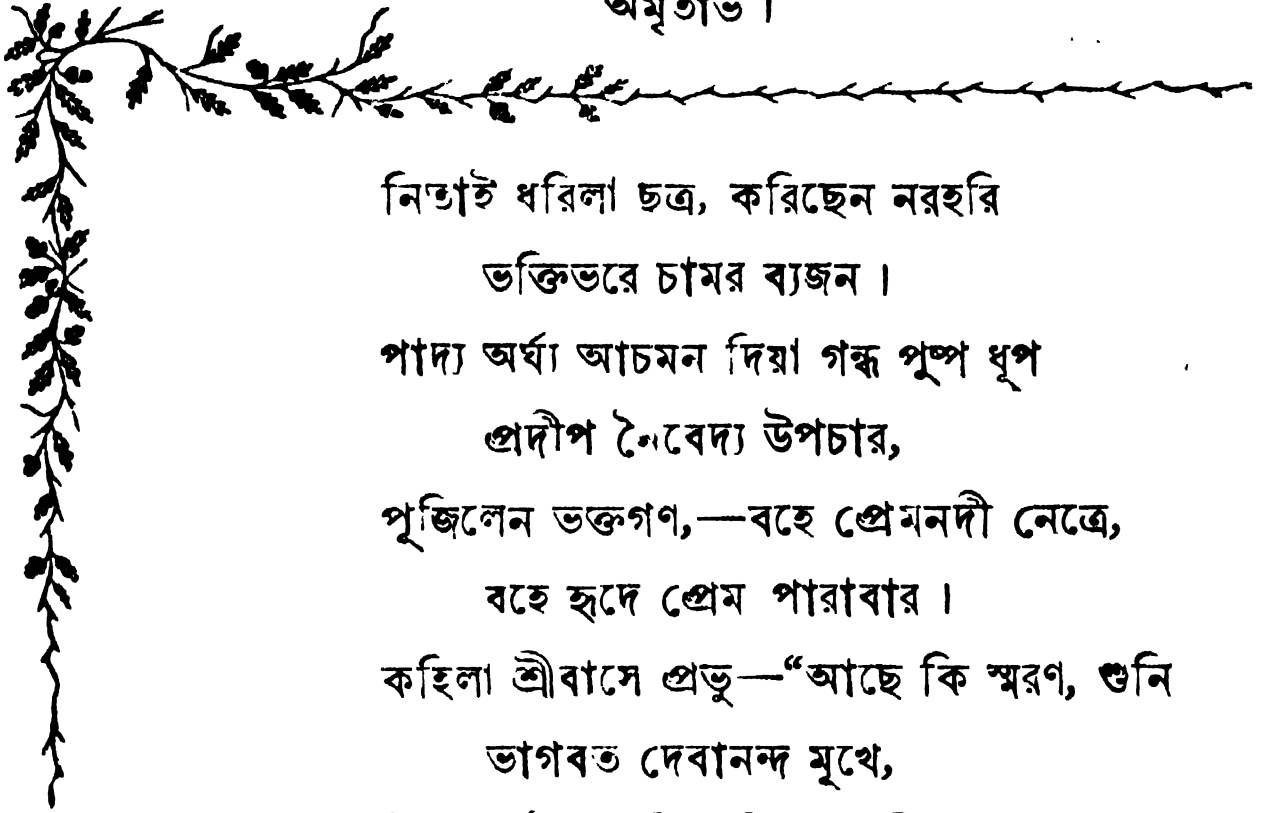 অমৃতাভ।
নিতাই ধরিলা ছত্র, করিছেন নরহরি
ভক্তিভরে চামর ব্যজন।
পাদ্য অর্ঘ্য আচমন দিয়া গন্ধ পুষ্প ধূপ
প্রদীপ নৈবেদ্য উপচার,
পূজিলেন ভক্তগণ,—বহে প্রেমনদী নেত্রে,
বহে হৃদে প্রেম পারাবার।
কহিলা শ্রীবাসে প্রভু—“আছে কি স্মরণ, শুনি
ভাগবত দেবানন্দ মুখে,